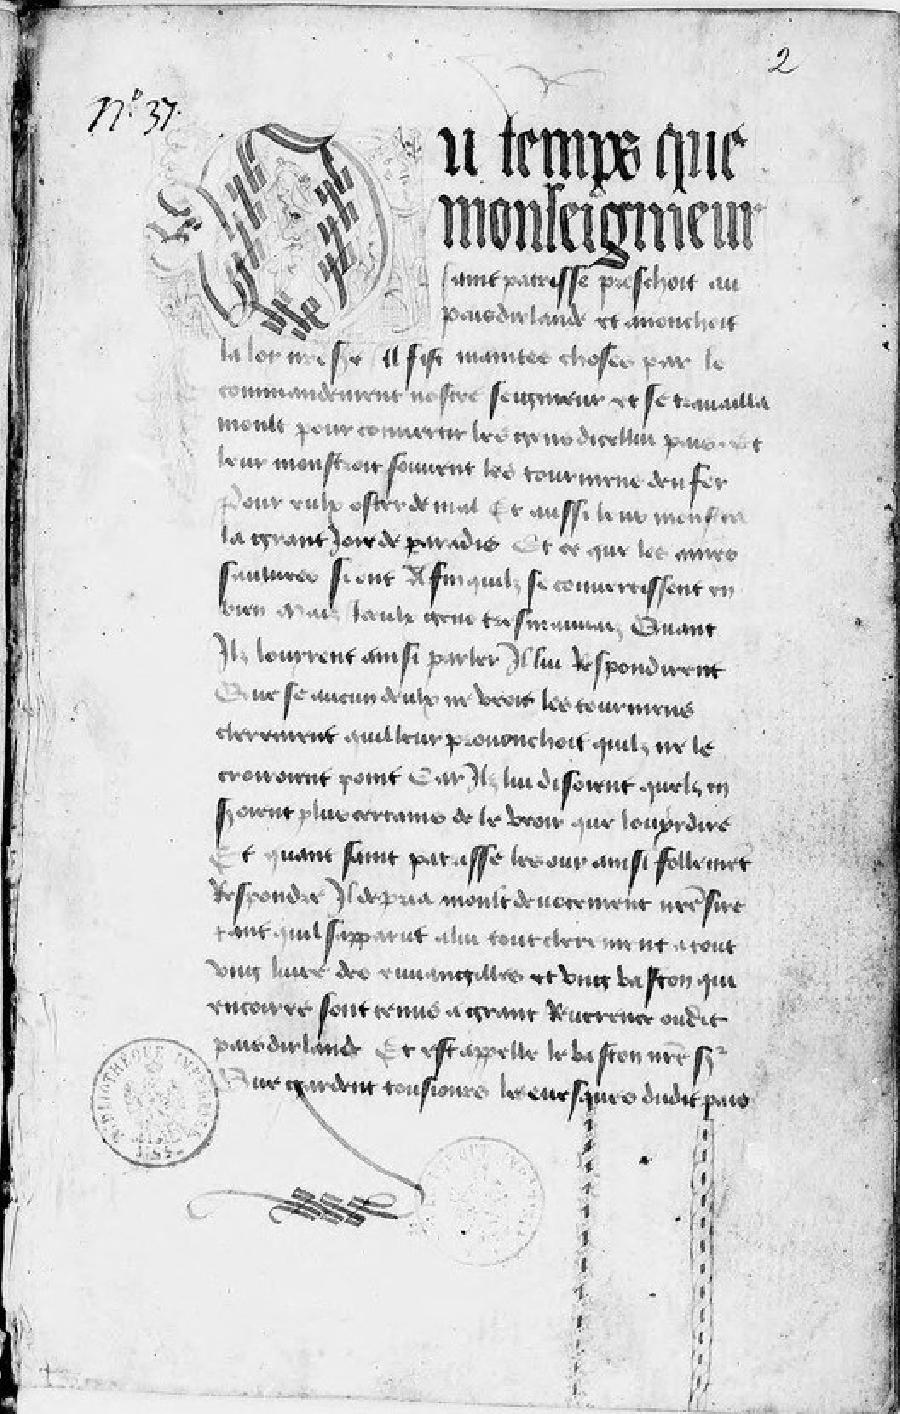 2
No 37.
Ou temps que
monseignieur
saint patrisse preschoit au
pais dirlande et anonchoit
la loy il fist maintes choses par le
commandement nostre seigneur et se travailla
moult pour convertir les gens dicelluy pais et
leur monstroit souvent les tourmens denfer
Pour eulx oster de mal Et aussi leur monstra
la grant Joie de paradis Et ce que les ames
saulvees sient Afin quilz se convertissent en
bien Mais gens tresmauvais Quant
Ilz louyrent ainsi parler Ilz lui Respondirent
Que se aucun deulx ne veoit les tourmens
clerement quil leur prononchoit quilz ne le
croiroient point Car Ilz lui dissoient quilz en
soient plus certains de le veoir que louyr dire
Et quant saint patrisse les ouy ainsi follement
Respondre Il depria moult devotement nre sire
tant quil sapparut a lui tout clerement a tout
ung livre des euvangilles et ung baston qui
encoires sont tenus a grant Reverence oudit
pais dirlande Et est appelle le baston nre sr
Que gardent tousiours les evesques dudit pais
BIBLIOTHÈQUE IMPÉRIALE MSS.